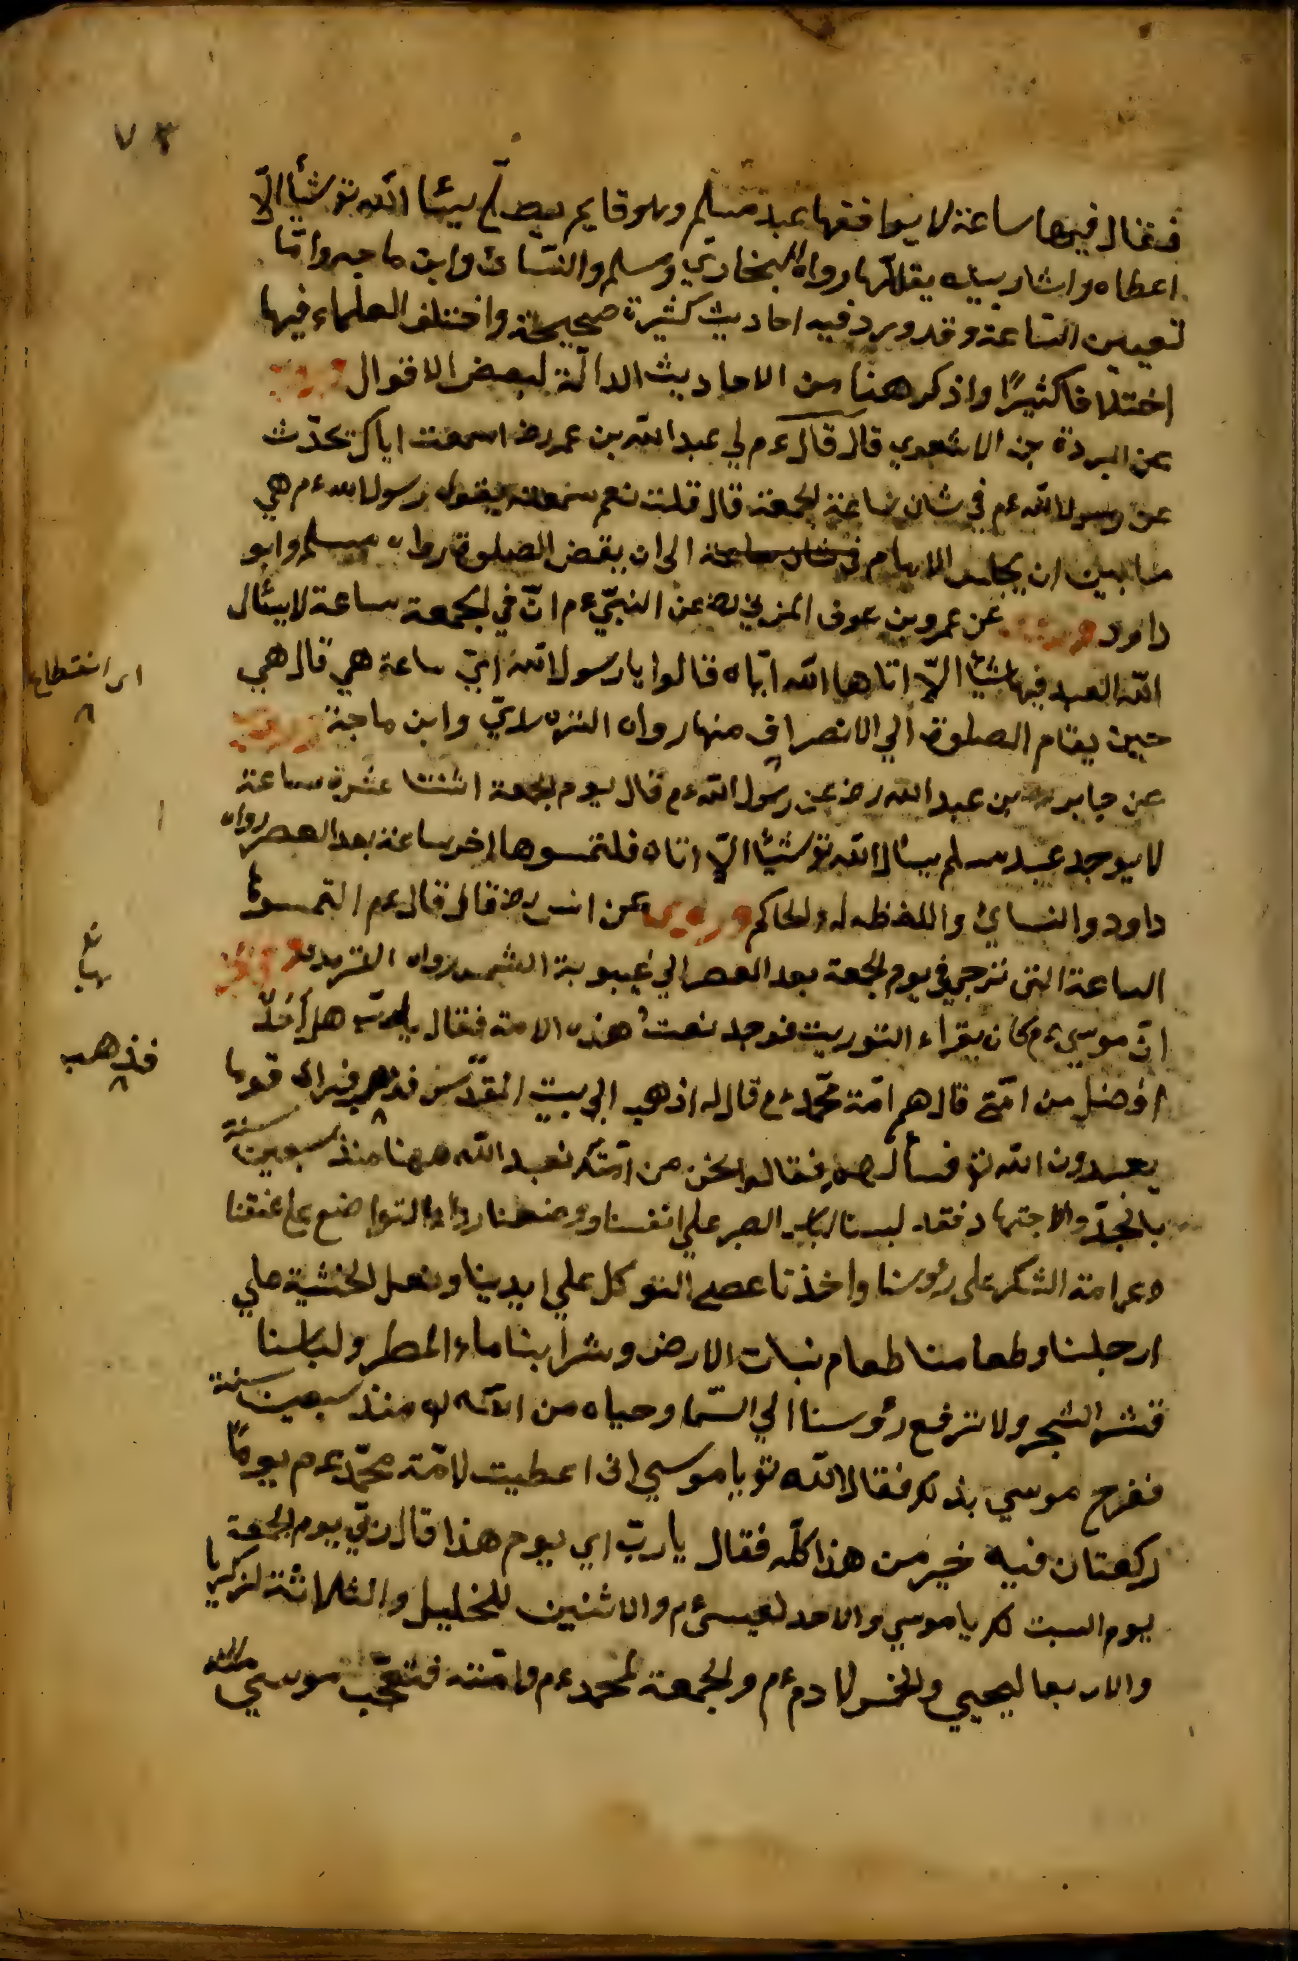 ٧٣
فقال فيها ساعة لا يوافقها عبد مسلم وهو قايم يصلي يسئا الله تع شيأ الّا
اعطاه واشار بيده يقللّها رواه البخاري ومسلم والنسائ وابن ماجه وامّا
تعيين الساعة وقد ورد فيه احاديث كثيرة صحيحة واختلف العلماء فيها
اختلافا كثيرًا واذكر هنا من الاحاديث الدالّة لبعض الاقوال
عن البردة بن الاشعري قال قال ءم لي عبد الله بن عمر رضـ اسمعت اباك يحدّث
عن رسول الله ءم في شان ساعة الجمعة قال قلت نعم سمعته يقول رسول الله ءم هي
ما بين ان يجلس الامام الى ان يقض الصلوة رواه مسلم وابو
داود عن عمرو بن عوف المزني رضـ عن النبيّ ءم انّ في الجمعة ساعة لا يسئال
الله العبد فيها شيأ الّا اتاها الله ايّاه قالوا يا رسول الله ايّ ساعة هي قال هي
حين يقام الصلوة الي الانصراف منها رواه الترمدي وابن ماجة
عن جابر بن عبد الله رضـ عن رسول الله ءم قال يوم الجمعة اثنتا عشرة ساعة
لا يوجد عبد مسلم يسال الله تع شيأ الّا اتاه فلتمسوها اخر ساعة بعد العصر رواه
داود والنسائ واللفظ له والحاكم وروي عن انس رضـ قال قال ءم التمسوا
الساعة التى ترجي في يوم الجمعة بعد العصر الي غيبوبة الشمس رواه الترمدي
انّ موسي ءم كان يقراء التوريت فوجد نعت هذه الامة فقال يا ربّ هل احد
افضل من امّتي قال هم امّة محمّد ءم قال له اذهب الي بيت المقدّس فذهب فراى قوما
يعبدون الله تع فسألهم فقالوا نحن من امّتك نعبد الله ههنا منذ سبعين سنة
بالجدّ والاجتهاد فقد لبسنا لباس الصبر علي انفسنا ووضعنا رداء التواضع علي عنقنا
وعمامة الشكر على رؤسنا واخذنا عصى التوكل علي ايدينا ونعل الخشية علي
ارجلنا وطعامنا طعام نبات الارض وشرابنا ماء المطر ولباسنا
قشر الشجر ولا نرفع رؤسنا الي السّما وحياء من الله تع منذ سبعين سنة
ففرح موسي بذلك فقال الله تع يا موسي انى اعطيت لامّة محمّد ءم يومًا
ركعتان فيه خير من هذا كلّه فقال يا ربّ اي يوم هذا قال ربّي يوم الجمعة
يوم السبت لك يا موسي والاحد لعيسى ءم والاثنين للخليل والثلاثة لزكريا
والاربعا ليحيي والخمس لادم ءم والجمعة لمحمد ءم وامّته فتعجّب موسي
اى انقطاع
فذهب